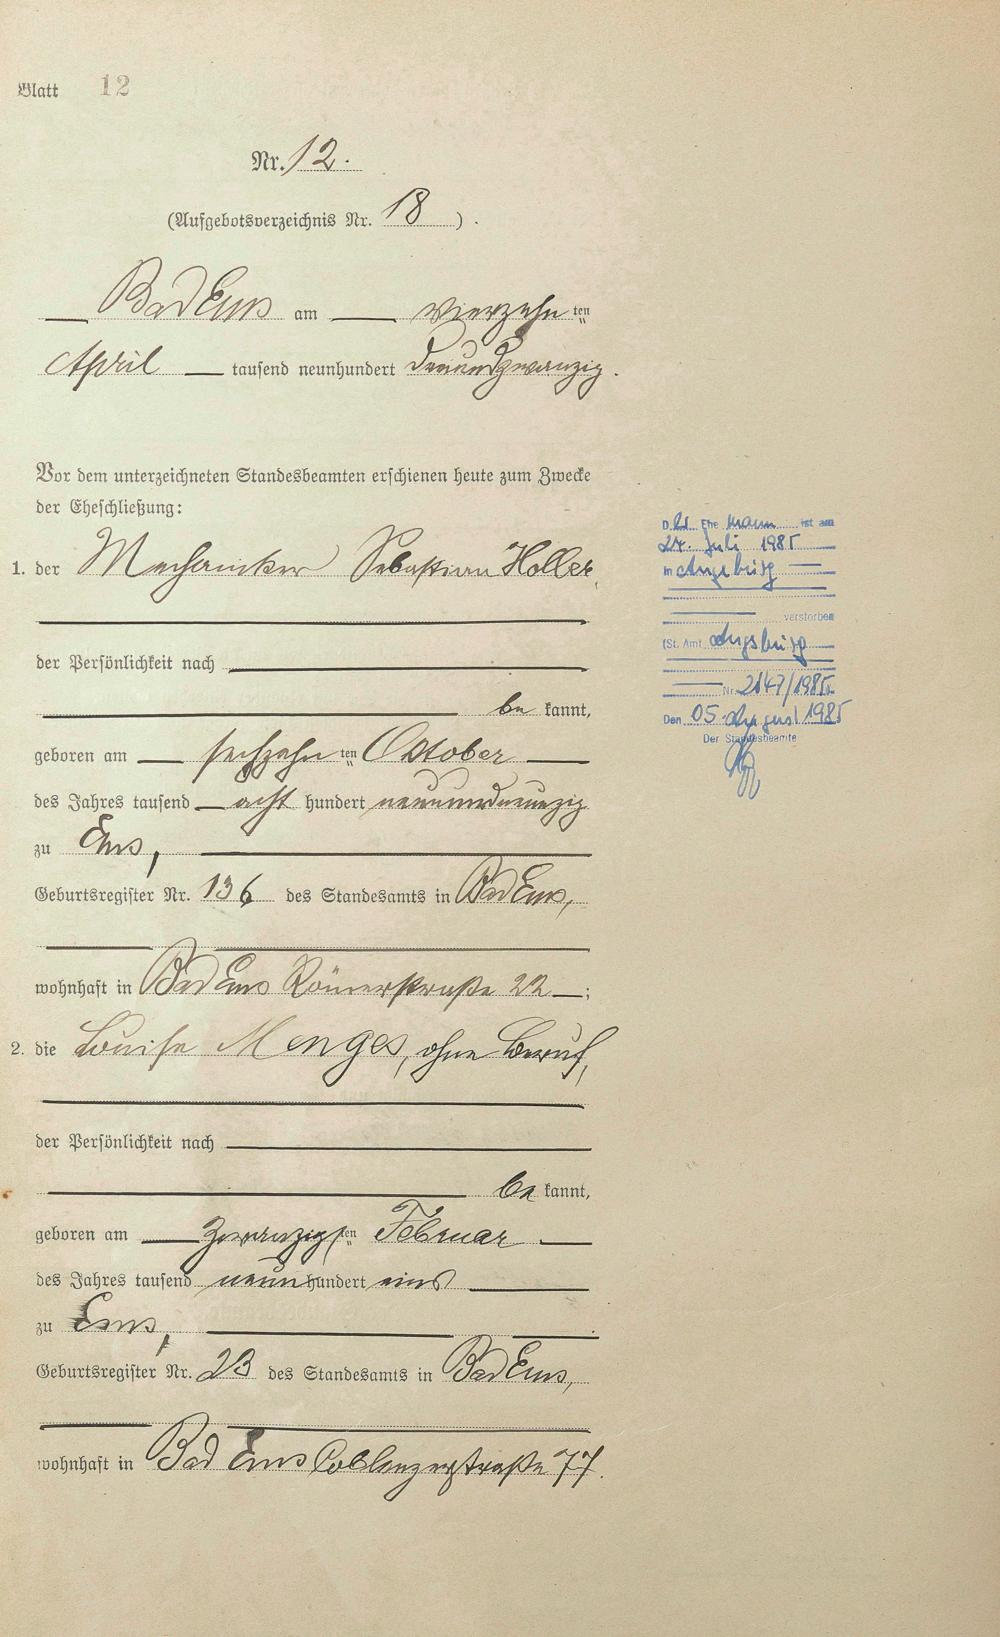 Blatt 12
Nr. 12.
(Aufgebotsverzeichnis Nr. 18).
Bad Ems am vierzehnten
April tausend neunhundert dreiundzwanzig.
Vor dem unterzeichneten Standesbeamten erschienen heute zum Zwecke
der Eheschließung:
1. der Mechaniker Sebastian Holler,
der Persönlichkeit nach
bekannt,
geboren am sechzehnten Oktober
des Jahres tausend acht hundert neunundneunzig
zu Ems,
Geburtsregister Nr. 136 des Standesamts in Bad Ems,
wohnhaft in Bad Ems Römerstraße 22;
2. die Louise Menges, ohne Beruf,
der Persönlichkeit nach
bekannt,
geboren am zwanzigsten Februar
des Jahres tausend neunhundert eins
zu Ems,
Geburtsregister Nr. 23 des Standesamts in Bad Ems,
wohnhaft in Bad Ems Coblenzerstraße 77.
Der Ehemann ist am
Juli 1985
in Augsburg
verstorben
(St. Amt Augsburg
Nr. 2147/1985).
Den 05. August 1985
Der Standesbeamte